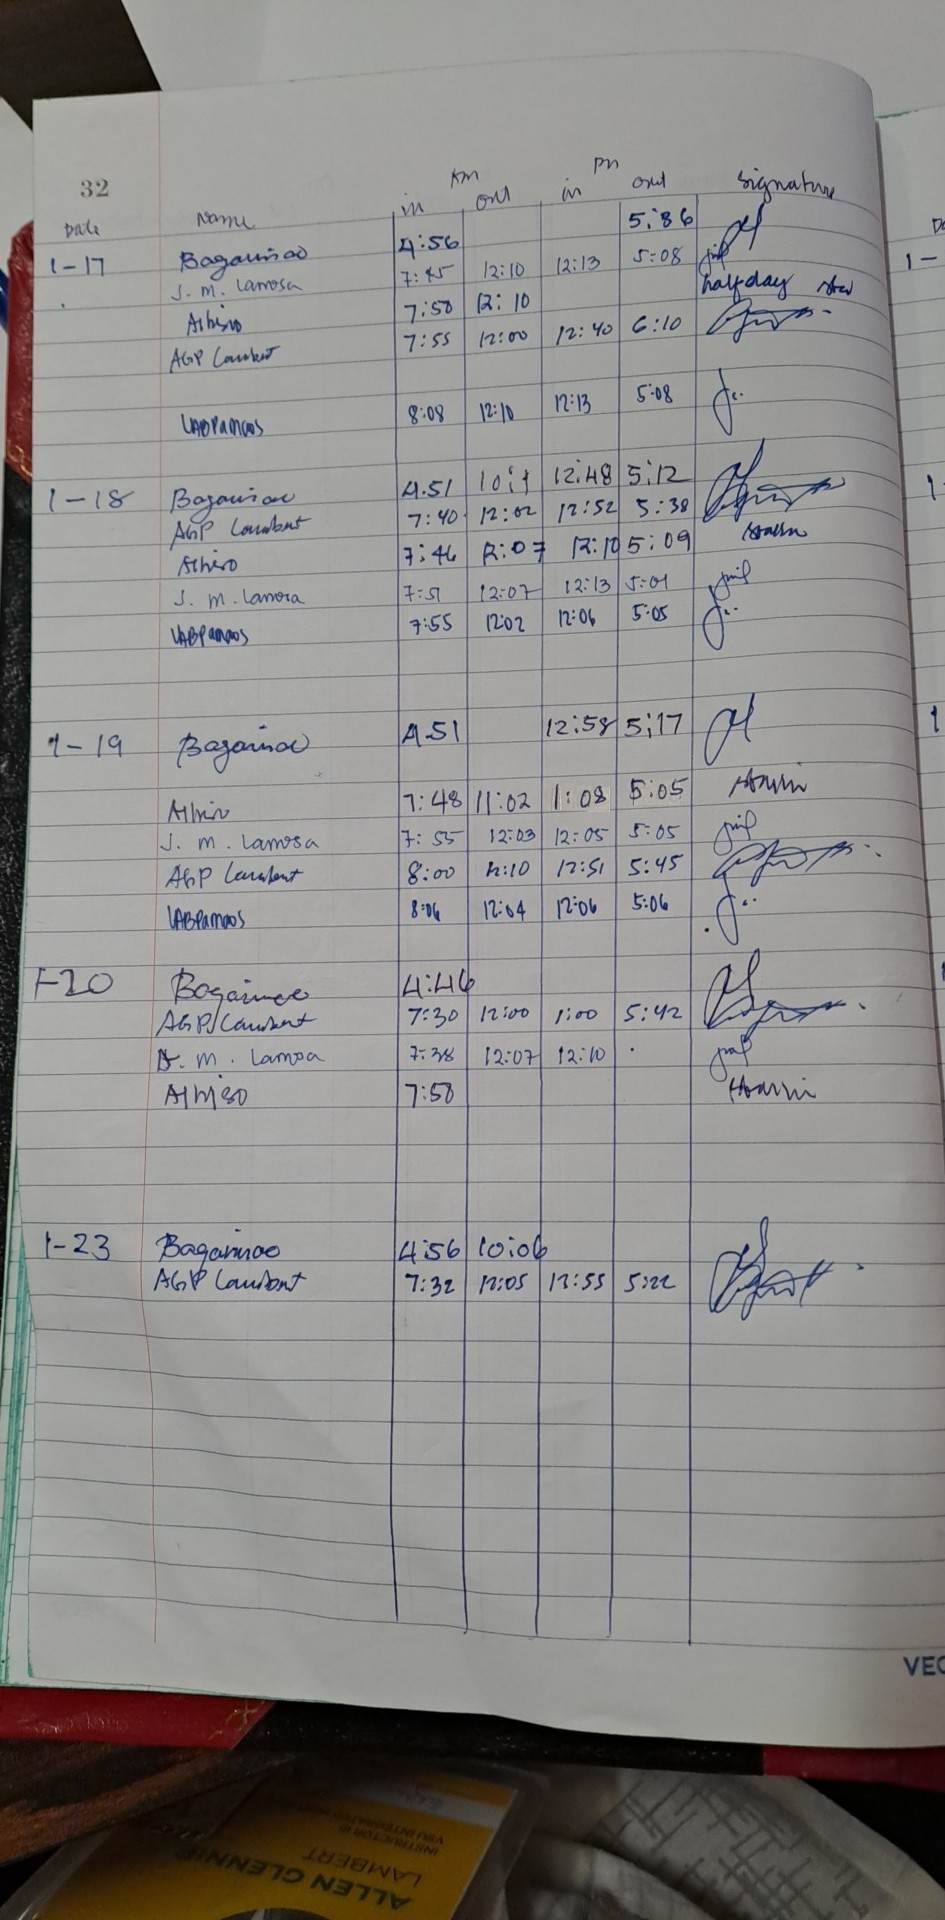 32
AM PM
Date Name in out in out Signature
1-17 Bagarinao 4:56 5:86
J. M. Lamosa 7:45 12:10 12:13 5:08
Albiso 7:50 12:10 halfday
AGP Lambert 7:55 12:00 12:40 6:10
LABPamaos 8:08 12:10 12:13 5:08
1-18 Bagarinao 4:51 12:48 5:12
AGP Lambert 7:40 12:02 12:52 5:38
Albiso 7:46 12:07 12:10 5:09
J. M. Lamosa 7:51 12:07 12:13 5:01
LABPamaos 7:55 12:02 12:06 5:05
1-19 Bagarinao 4:51 12:58 5:17
Albiso 7:48 11:02 1:08 5:05
J. M. Lamosa 7:55 12:03 12:05 5:05
AGP Lambert 8:00 12:10 12:51 5:45
LABPamaos 8:06 12:04 12:06 5:06
1-20 Bagarinao 4:46
AGP Lambert 7:30 12:00 1:00 5:42
J. M. Lamosa 7:38 12:07 12:10
Albiso 7:58
1-23 Bagarinao 4:56 10:06
AGP Lambert 7:32 12:05 12:55 5:22
VEC
ALLEN GLENNIE
LAMBERT
INSTRUCTOR
VSU INTEGRATED